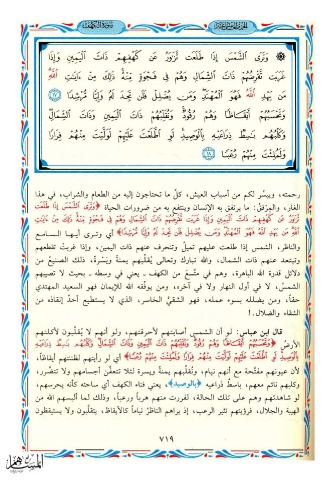 سورة الكهف
۞ وَتَرَى ٱلشَّمْسَ إِذَا طَلَعَت تَّزَٰوَرُ عَن كَهْفِهِمْ ذَاتَ ٱلْيَمِينِ وَإِذَا
غَرَبَت تَّقْرِضُهُمْ ذَاتَ ٱلشِّمَالِ وَهُمْ فِى فَجْوَةٍ مِّنْهُ ذَٰلِكَ مِنْ ءَايَٰتِ ٱللَّهِ
مَن يَهْدِ ٱللَّهُ فَهُوَ ٱلْمُهْتَدِ وَمَن يُضْلِلْ فَلَن تَجِدَ لَهُۥ وَلِيًّا مُّرْشِدًا ١٧
وَتَحْسَبُهُمْ أَيْقَاظًا وَهُمْ رُقُودٌ وَنُقَلِّبُهُمْ ذَاتَ ٱلْيَمِينِ وَذَاتَ ٱلشِّمَالِ
وَكَلْبُهُم بَٰسِطٌ ذِرَاعَيْهِ بِٱلْوَصِيدِ لَوِ ٱطَّلَعْتَ عَلَيْهِمْ لَوَلَّيْتَ مِنْهُمْ فِرَارًا
وَلَمُلِئْتَ مِنْهُمْ رُعْبًا ١٨
رحمته، وييسّر لكم من أسباب العيش، كلّ ما تحتاجون إليه من الطعام والشراب، في هذا
الغار، والمِرْفَق: ما يرتفق به الإنسان وينتفع به من ضرورات الحياة ﴿وَتَرَى ٱلشَّمْسَ إِذَا طَلَعَت
تَّزَٰوَرُ عَن كَهْفِهِمْ ذَاتَ ٱلْيَمِينِ وَإِذَا غَرَبَت تَّقْرِضُهُمْ ذَاتَ ٱلشِّمَالِ وَهُمْ فِى فَجْوَةٍ مِّنْهُ ذَٰلِكَ مِنْ ءَايَٰتِ
ٱللَّهِ مَن يَهْدِ ٱللَّهُ فَهُوَ ٱلْمُهْتَدِ وَمَن يُضْلِلْ فَلَن تَجِدَ لَهُۥ وَلِيًّا مُّرْشِدًا﴾ أي وترى أيها السامع
والناظر، الشمس إذا طلعت عليهم تميلُ وتنحرف عنهم ذات اليمين، وإذا غربت تقطعهم
وتبتعد عنهم ذات الشمال، والله تبارك وتعالى يُقلّبهم يمنةً ويَسْرة، ذلك الصنيع من
دلائل قدرة الله الباهرة، وهم في متّسع من الكهف ـ يعني في وسطه ـ بحيث لا تصيبهم
الشمسُ، لا في أول النهار ولا في آخره، ومن يوفّقه الله للإيمان فهو السعيد المهتدي
حقاً، ومن يضلله بسوء عمله، فهو الشقيُّ الخاسر، الذي لا يستطيع أحدٌ إنقاذه من
الشقاء والضلال!
قال ابن عباس: لو أن الشمس أصابتهم لأحرقتهم، ولو أنهم لا يُقلّبون لأكلتهم
الأرضُ ﴿وَتَحْسَبُهُمْ أَيْقَاظًا وَهُمْ رُقُودٌ وَنُقَلِّبُهُمْ ذَاتَ ٱلْيَمِينِ وَذَاتَ ٱلشِّمَالِ وَكَلْبُهُم بَٰسِطٌ ذِرَاعَيْهِ
بِٱلْوَصِيدِ لَوِ ٱطَّلَعْتَ عَلَيْهِمْ لَوَلَّيْتَ مِنْهُمْ فِرَارًا وَلَمُلِئْتَ مِنْهُمْ رُعْبًا﴾ أي لو رأيتهم لظننتهم أيقاظاً،
لأن عيونهم مفتّحة مع أنهم نيام، ونُقلّبهم يمنةً ويسرة لئلا تتعفّن أجسامهم ولا تتضّرر،
وكلبهم نائم معهم، باسطٌ ذراعيه ﴿بالوصيد﴾، يعني فناء الكهف أي ساحته كأنه يحرسهم،
لو شاهدتهم وهم على تلك الحالة، لفررت منهم هرباً ورعباً، وذلك لما ألبسهم الله من
الهيبة والجلال، فرؤيتهم تثير الرعب، إذ يراهم الناظرُ نياماً كالأيقاظ، يتقلّبون ولا يستيقظون
٧١٩